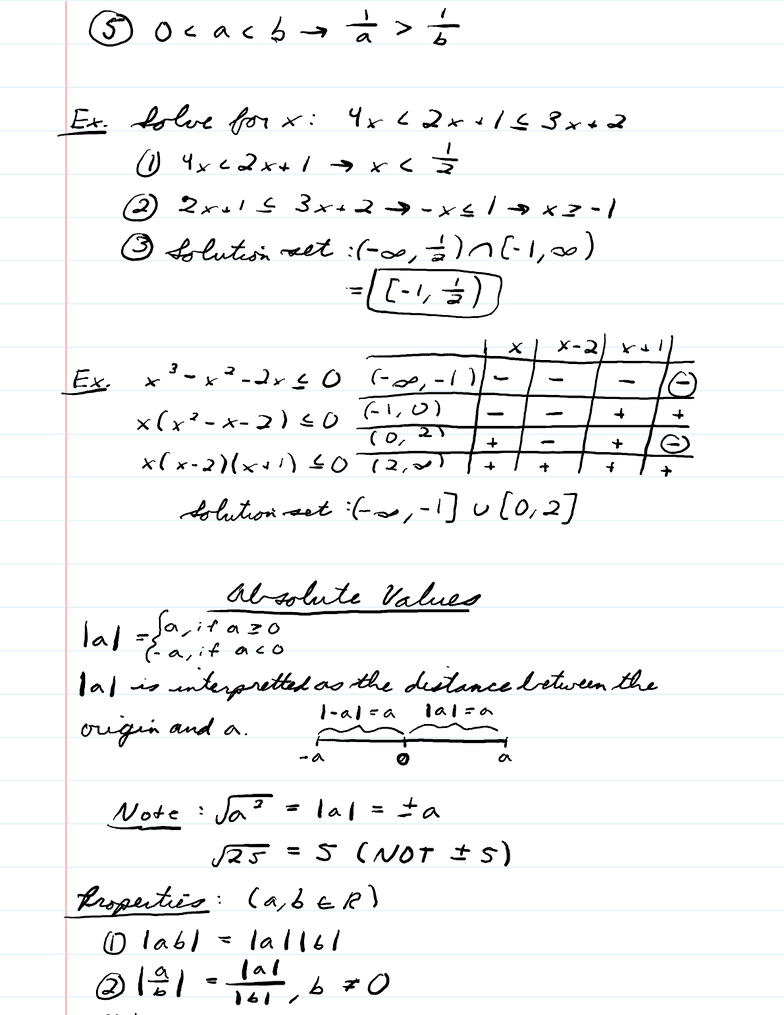 ⑤ 0 < a < b → 1/a > 1/b
Ex. Solve for x: 4x < 2x + 1 ≤ 3x + 2
① 4x < 2x + 1 → x < 1/2
② 2x + 1 ≤ 3x + 2 → -x ≤ 1 → x ≥ -1
③ Solution set : (-∞, 1/2) ∩ [-1, ∞)
= [-1, 1/2)
x | x-2 | x+1
Ex. x³ - x² - 2x ≤ 0 (-∞, -1) - - - ⊖
x(x² - x - 2) ≤ 0 (-1, 0) - - + +
(0, 2) + - + ⊖
x(x-2)(x+1) ≤ 0 (2, ∞) + + + +
Solution set : (-∞, -1] ∪ [0, 2]
Absolute Values
|a| = { a, if a ≥ 0
{ -a, if a < 0
|a| is interpretted as the distance between the
origin and a. |-a| = a |a| = a
-a 0 a
Note : √a² = |a| = ±a
√25 = 5 (NOT ± 5)
Properties : (a, b ∈ R)
① |ab| = |a||b|
② |a/b| = |a|/|b|, b ≠ 0